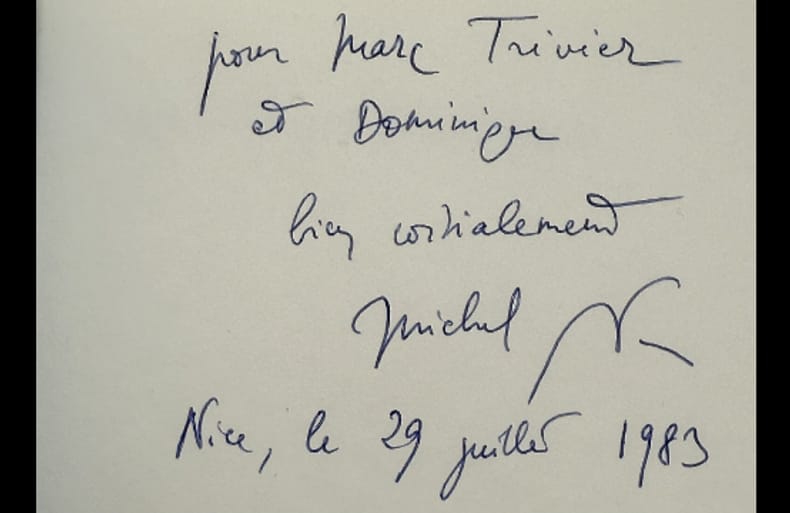 pour Marc Trivier
et Dominique
bien cordialement
Michel
Nice, le 29 juillet 1983